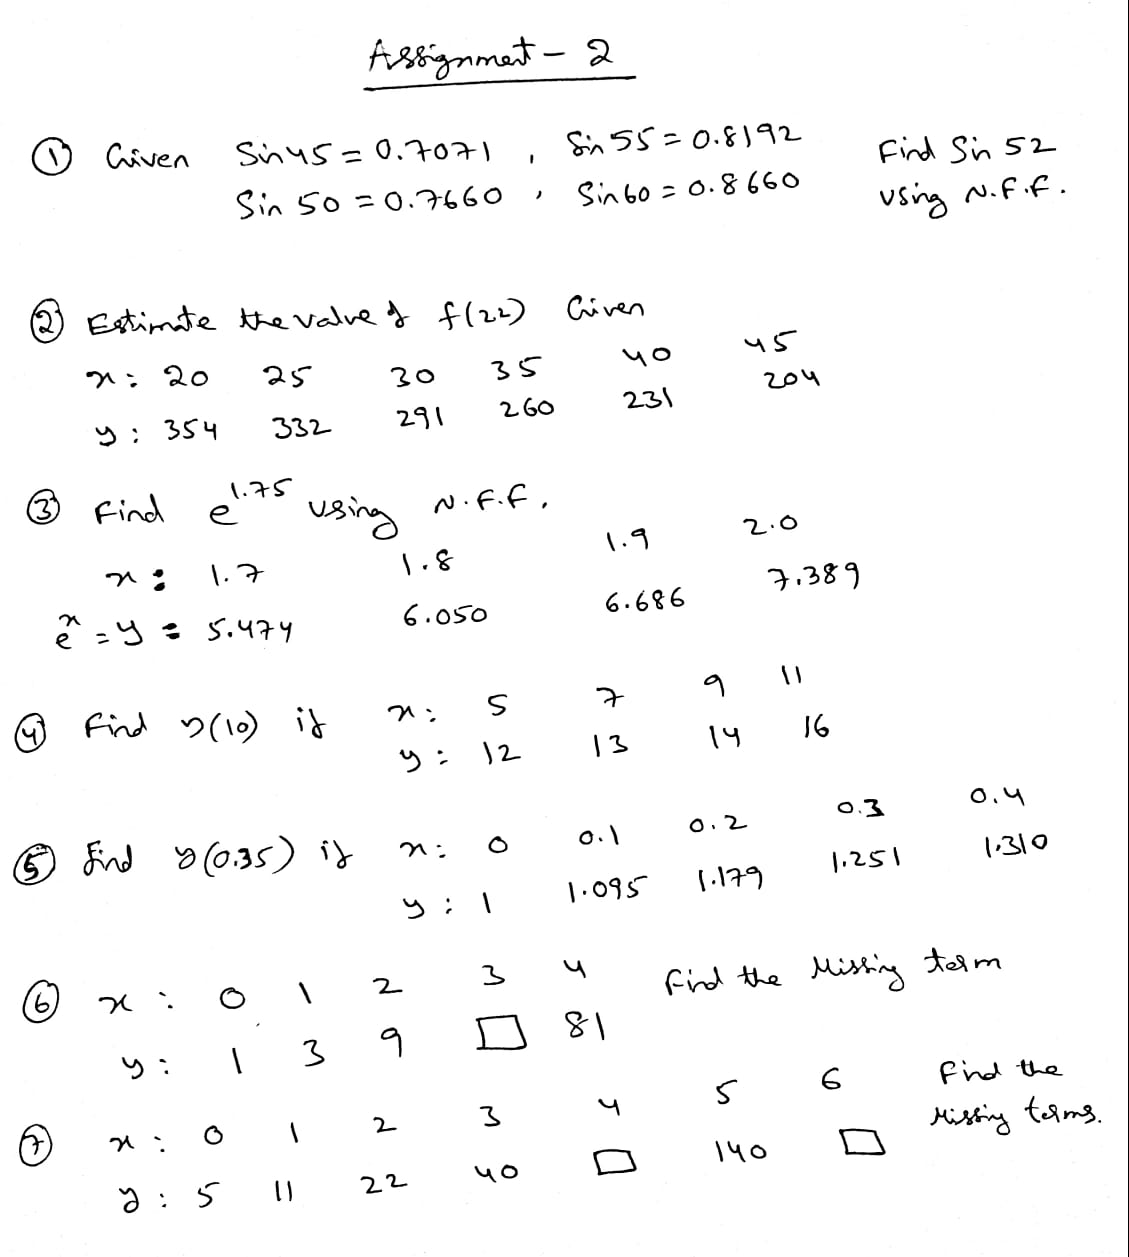 Assignment - 2
① Given Sin 45 = 0.7071 , Sin 55 = 0.8192 Find Sin 52
Sin 50 = 0.7660 , Sin 60 = 0.8660 using N.F.F.
② Estimate the value of f(22) Given
x : 20 25 30 35 40 45
y : 354 332 291 260 231 204
③ Find e^1.75 using N.F.F.
x : 1.7 1.8 1.9 2.0
e^x = y = 5.474 6.050 6.686 7.389
④ Find y(10) if x : 5 7 9 11
y : 12 13 14 16
⑤ Find y(0.35) if x : 0 0.1 0.2 0.3 0.4
y : 1 1.095 1.179 1.251 1.310
⑥ x : 0 1 2 3 4 Find the Missing term
y : 1 3 9 □ 81
⑦ x : 0 1 2 3 4 5 6 Find the
y : 5 11 22 40 □ 140 □ Missing terms.